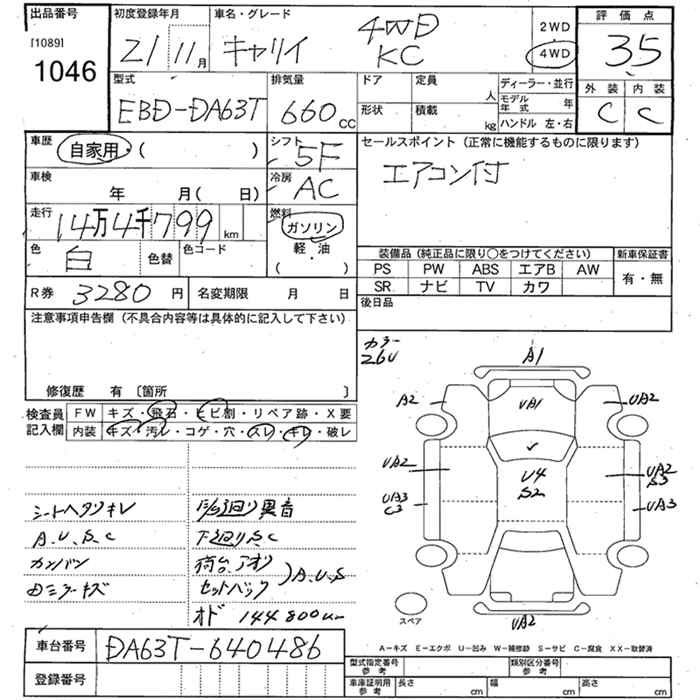 出品番号
[1089]
1046
初度登録年月
21 11月
車名・グレード
キャリイ 4WD KC
2WD
4WD
評価点
3.5
外装 内装
C C
型式
EBD-DA63T
排気量
660 cc
ドア 定員 人
形状 積載 kg
ディーラー・並行
モデル年式 年
ハンドル 左・右
車歴
自家用・( )
シフト
5F
セールスポイント(正常に機能するものに限ります)
エアコン付
車検
年 月( 日)
冷房
AC
走行
14万4千799 km
燃料
ガソリン
軽・油
( )
色
白
色替
色コード
装備品(純正品に限り○をつけてください)
新車保証書
PS PW ABS エアB AW
SR ナビ TV カワ
有・無
R券 3280円
名変期限 月 日
後日品
注意事項申告欄(不具合内容等は具体的に記入して下さい)
修復歴 有〔箇所 〕
カラー
26U
A1
検査員記入欄
FW キズ・飛石・ヒビ割・リペア跡・X要
内装 キズ・汚レ・コゲ・穴・スレ・キレ・破レ
A2
UA1
UA2
UA2
U4
S2
UA2
S3
UA3
C3
UA3
UA2
スペア
シートヘタリキレ
A.U.S.C
カンバン
下廻りS.C
荷台.アオリ
セットバック
A.U.S
144800
A−キズ E−エクボ U−凹み W−補修跡 S−サビ C−腐食 XX−取替済
車台番号
DA63T-640486
登録番号
型式指定番号 参考
類別区分番号 参考
車庫証明用 参考 長さ cm 幅 cm 高さ cm